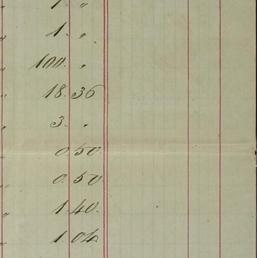 " 1. "
1. "
" 100. "
" 18. 36
" 3. "
" 0. 50
" 0. 50
" 1. 40.
" 1. 04